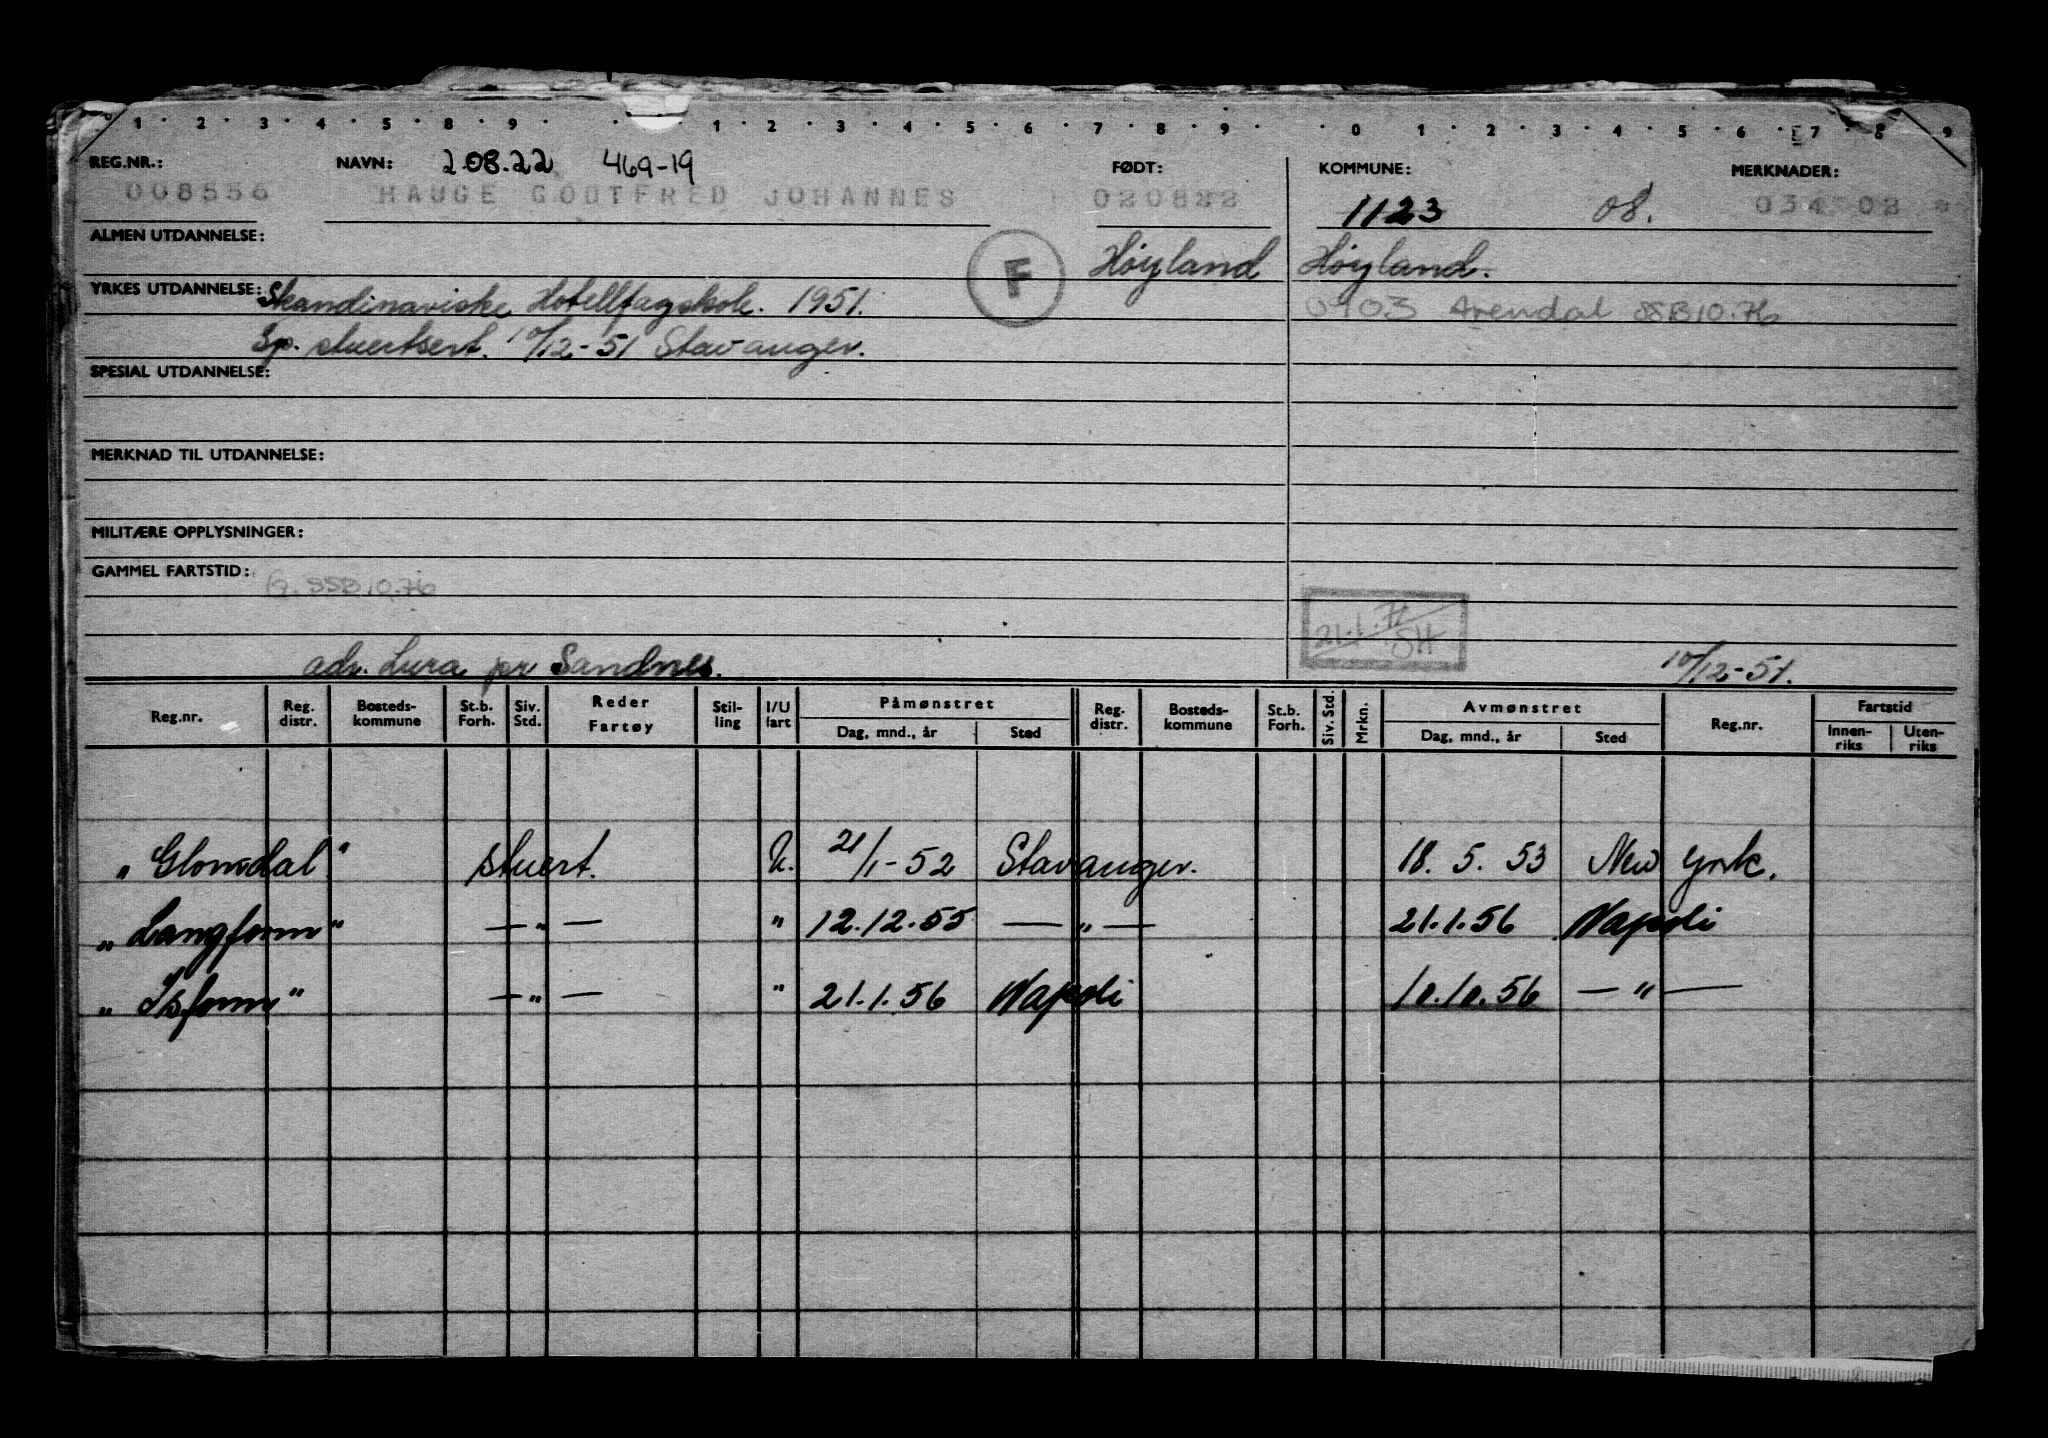 1 · 2 · 3 · 4 · 5 · 8 · 9 · · 1 · 2 · 3 · 4 · 5 · 6 · 7 · 8 · 9 · · 0 · 1 · 2 · 3 · 4 · 5 · 6 · 7 · 8 · 9
REG.NR.: NAVN: 2.08.22 469-19 FØDT: KOMMUNE: MERKNADER:
008556 HAUGE GODTFRED JOHANNES 020822 1123 08. 034 02
ALMEN UTDANNELSE: F Høyland Høyland.
YRKES UTDANNELSE: Skandinaviske Hotellfagskole. 1951. 0903 Arendal SSB10.76
Sp. stuertsert. 10/12-51 Stavanger.
SPESIAL UTDANNELSE:
MERKNAD TIL UTDANNELSE:
MILITÆRE OPPLYSNINGER:
GAMMEL FARTSTID: SSB10.76
21.1.72 SH
adr. Lura pr Sandnes. 10/12-51.
Reg.nr. Reg. distr. Bosteds-kommune St.b. Forh. Siv. Std. Reder Fartøy Stil-ling I/U fart Påmønstret Reg. distr. Bosteds-kommune St.b. Forh. Siv. Std. Mrkn. Avmønstret Reg.nr. Fartstid
Dag, mnd., år Sted Dag, mnd., år Sted Innen-riks Uten-riks
„Glomdal" stuert. U. 21/1-52 Stavanger. 18.5.53 New York.
„Langfonn" —„— „ 12.12.55 —„— 21.1.56 Napoli
„Isfonn" —„— „ 21.1.56 Napoli 10.10.56 —„—